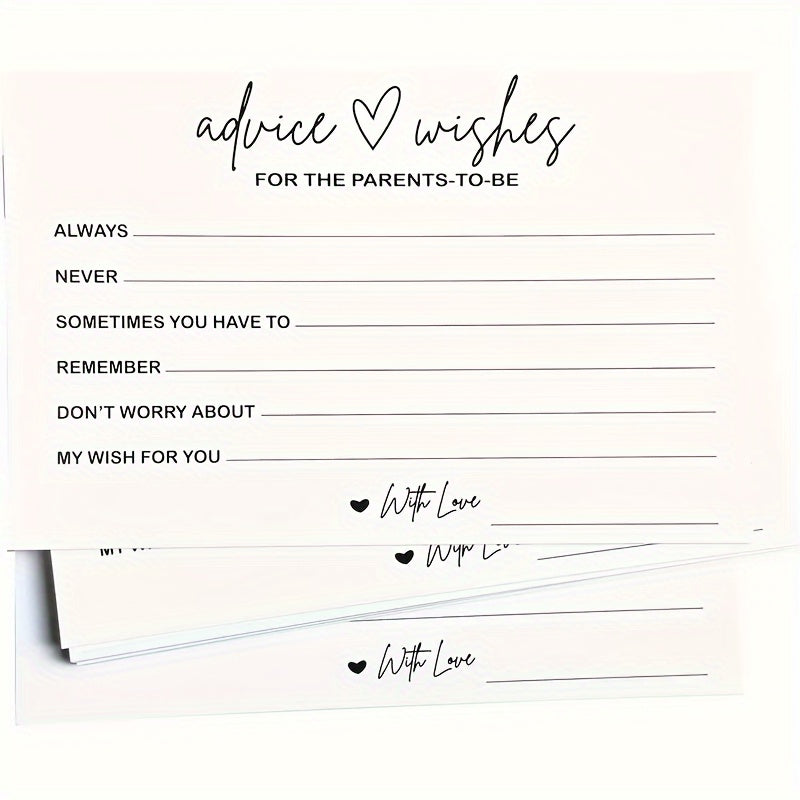 advice ♡ wishes
FOR THE PARENTS-TO-BE
ALWAYS
NEVER
SOMETIMES YOU HAVE TO
REMEMBER
DON'T WORRY ABOUT
MY WISH FOR YOU
♥ With Love
♥ With Love
♥ With Love